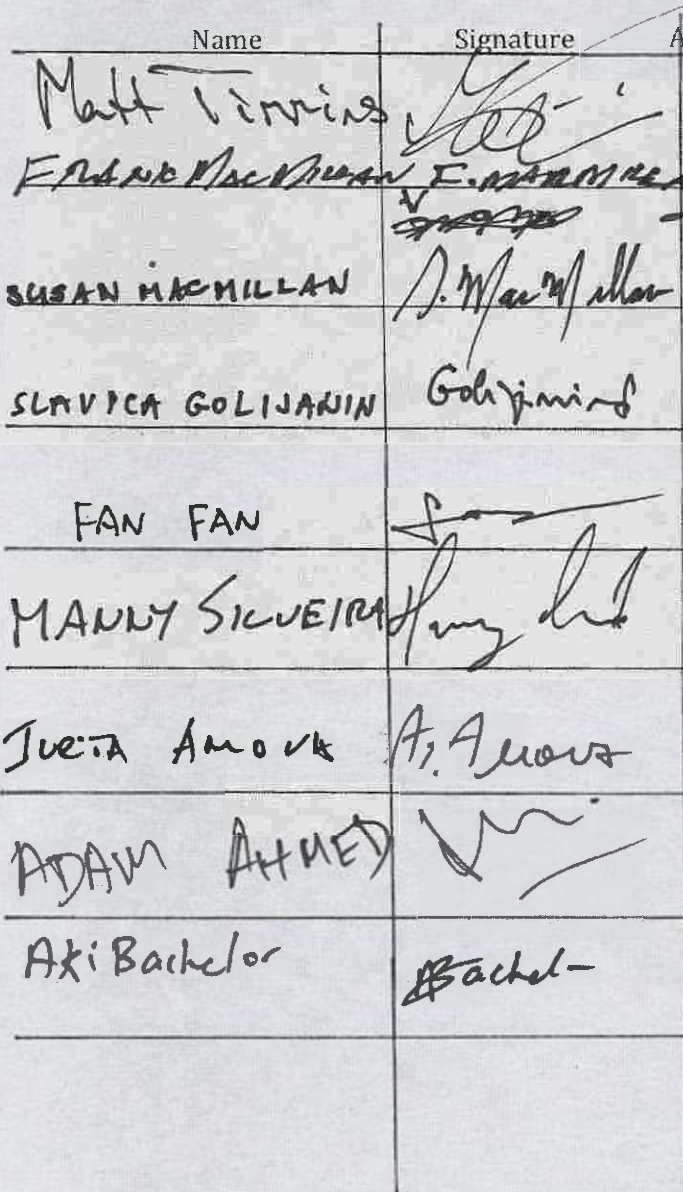 Name Signature A
Matt Timmins
FRANK MACMILLAN F. MACMILLA
SUSAN MACMILLAN S. MacMillan
SLAVICA GOLIJANIN Golijanin S
FAN FAN
MANNY SILVEIRA
AMOVA A. Amova
ADAM AHMED
Aki Bachelor ABachel